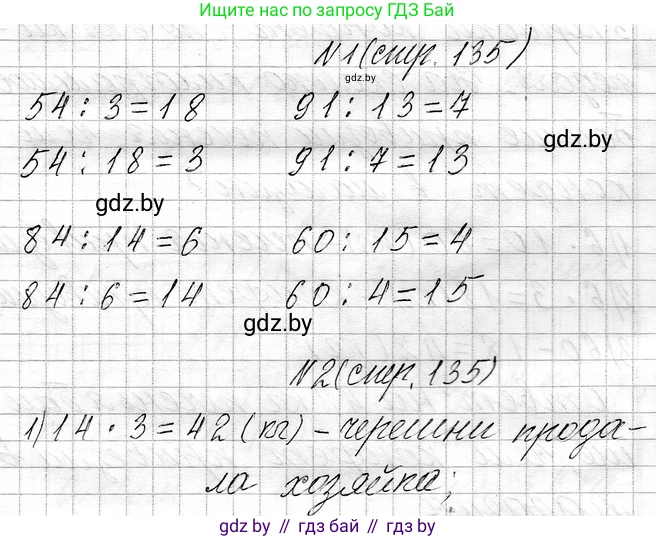 Ищите нас по запросу ГДЗ Бай
N1 (стр. 135)
gdz.by
54 : 3 = 18 91 : 13 = 7
gdz.by
54 : 18 = 3 91 : 7 = 13
gdz.by
84 : 14 = 6 60 : 15 = 4
84 : 6 = 14 60 : 4 = 15
gdz.by
N2 (стр. 135)
1) 14 · 3 = 42 (кг) – черешни прода-
ла хозяйка;
gdz.by // гдз бай // gdz by